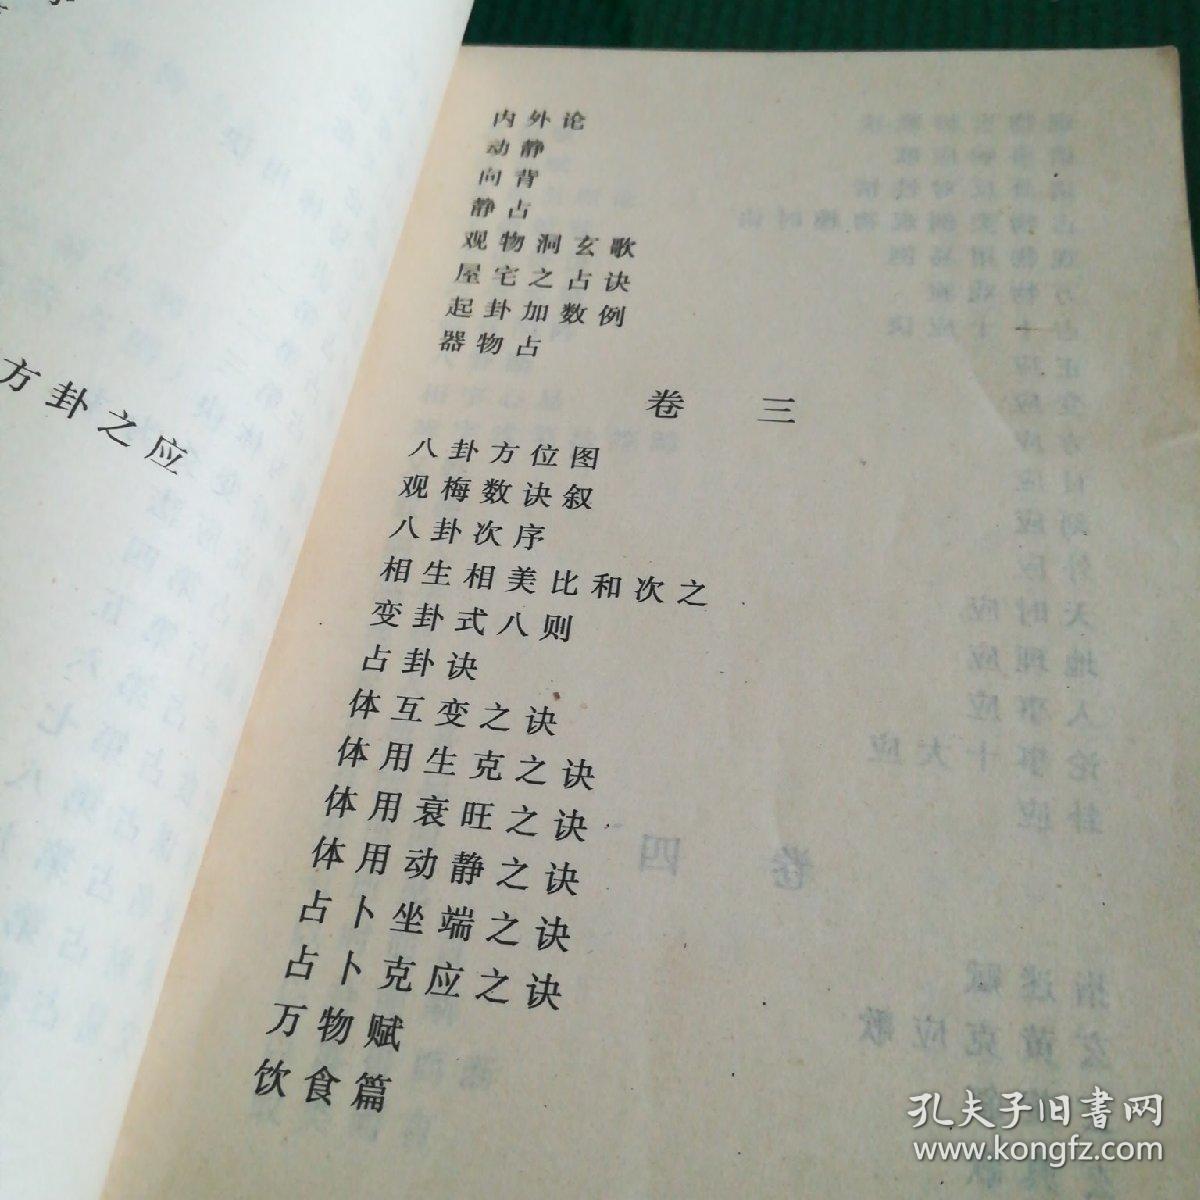 方卦之应
内外论
动静
向背
静占
观物洞玄歌
屋宅之占诀
起卦加数例
器物占
卷 三
八卦方位图
观梅数诀叙
八卦次序
相生相美比和次之
变卦式八则
占卦诀
体互变之诀
体用生克之诀
体用衰旺之诀
体用动静之诀
占卜坐端之诀
占卜克应之诀
万物赋
饮食篇
孔夫子旧书网
www.kongfz.com